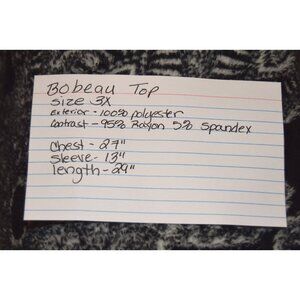 Bobeau Top
Size 3X
Exterior - 100% polyester
Contrast - 95% Rayon 5% Spandex
Chest - 27"
Sleeve - 13"
length - 29"